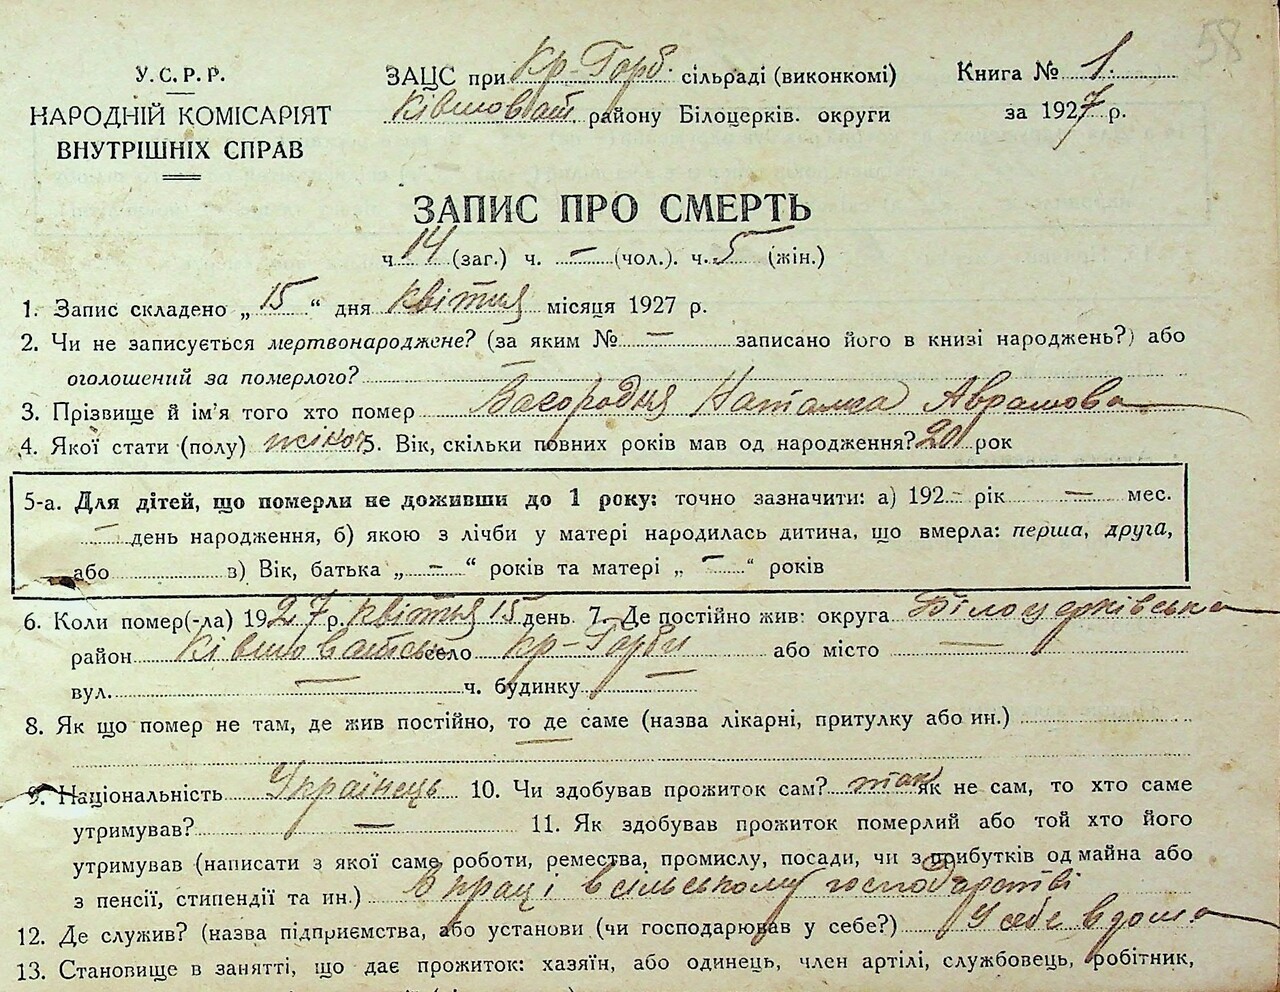 58
У.С.Р.Р.
НАРОДНІЙ КОМІСАРІЯТ
ВНУТРІШНІХ СПРАВ
ЗАЦС при Кр-Горб. сільраді (виконкомі)
Ківшоват. району Білоцерків. округи
Книга № 1.
за 1927 р.
ЗАПИС ПРО СМЕРТЬ
ч 14 (заг.) ч. — (чол.). ч. 5 (жін.)
1. Запис складено „15“ дня квітня місяця 1927 р.
2. Чи не записується мертвонароджене? (за яким № — записано його в книзі народжень?) або
оголошений за померлого? —
3. Прізвище й ім'я того хто помер Загородня Наталка Аврамова
4. Якої стати (полу) жіноч 5. Вік, скільки повних років мав од народження? 20 рок
5-а. Для дітей, що померли не доживши до 1 року: точно зазначити: а) 192 - рік — мес.
— день народження, б) якою з лічби у матері народилась дитина, що вмерла: перша, друга,
або в) Вік, батька „ — “ років та матері „ — “ років
6. Коли помер(-ла) 1927 р. квітня 15 день 7. Де постійно жив: округа Білоцерківська
район Ківшоватськ село Кр-Горби або місто —
вул. — ч. будинку —
8. Як що помер не там, де жив постійно, то де саме (назва лікарні, притулку або ин.)
—
9. Національність Українець 10. Чи здобував прожиток сам? так як не сам, то хто саме
утримував? — 11. Як здобував прожиток померлий або той хто його
утримував (написати з якої саме роботи, ремества, промислу, посади, чи з прибутків од майна або
з пенсії, стипендії та ин.) В праці в сільському господарстві
12. Де служив? (назва підприємства, або установи (чи господарював у себе?) У себе вдома
13. Становище в занятті, що дає прожиток: хазяїн, або одинець, член артілі, службовець, робітник,